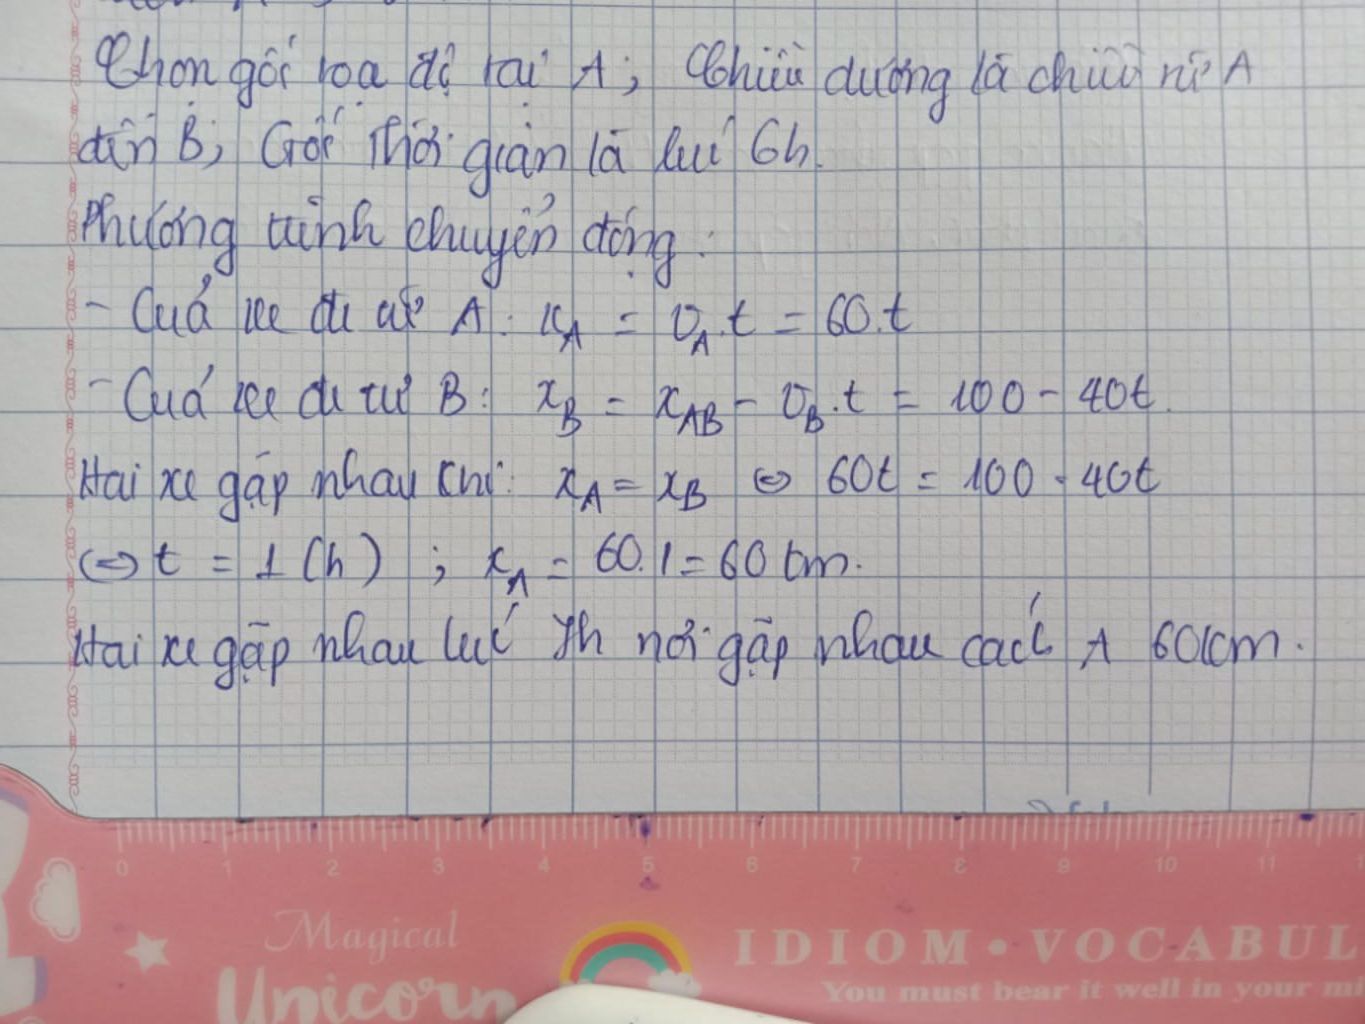 Chọn gốc toạ độ tại A; Chiều dương là chiều từ A
đến B; Gốc thời gian là lúc 6h.
Phương trình chuyển động:
- Của xe đi từ A: xA = vA.t = 60.t
- Của xe đi từ B: xB = xAB - vB.t = 100 - 40t.
Hai xe gặp nhau khi: xA = xB ⇔ 60t = 100 - 40t
⇔ t = 1 (h) ; xA = 60.1 = 60 km.
Hai xe gặp nhau lúc 7h nơi gặp nhau cách A 60km.
0 1 2 3 4 5 6 7 8 9 10 11
Magical
Unicorn
IDIOM • VOCABUL
You must bear it well in your mi